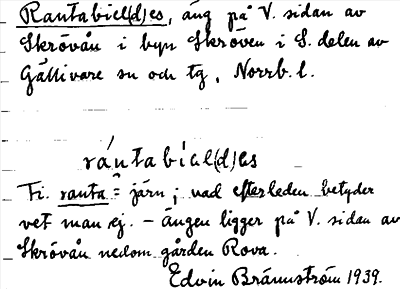 Rantabiel(d)es, äng på V. sidan av
Skrövån i byn Skröven i S. delen av
Gällivare sn och tg, Norrb. l.
rántabíεl(d)es
Fi. ranta = järn; vad efterleden betyder
vet man ej. – Ängen ligger på V. sidan av
Skrövån nedom gården Rova.
Edvin Brännström 1939.